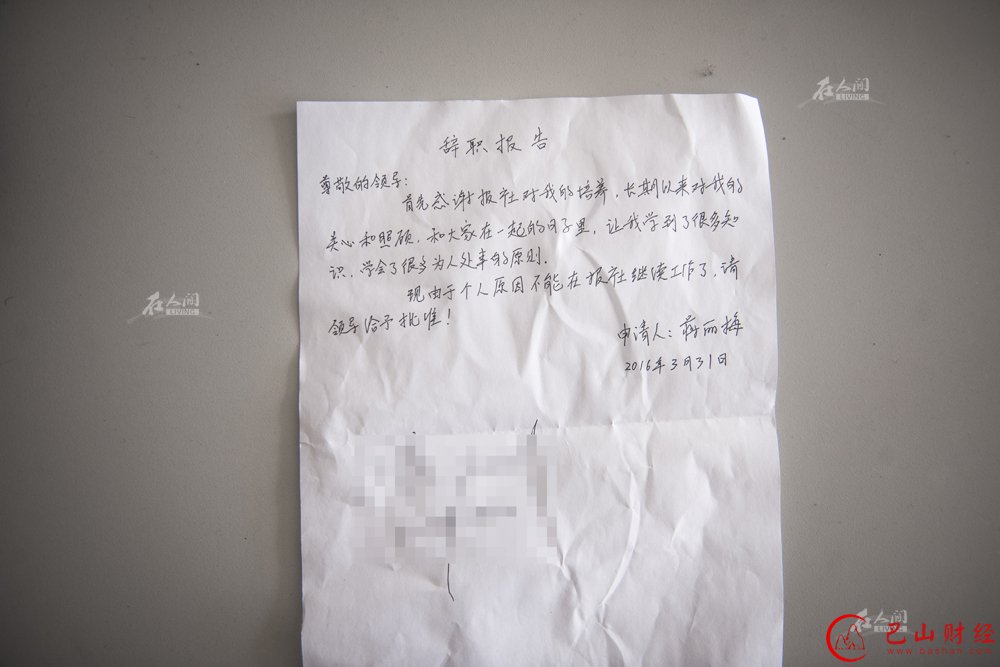 在人间
LIVING
辞职报告
尊敬的领导:
首先感谢报社对我的培养,长期以来对我的
关心和照顾,和大家在一起的日子里,让我学到了很多知
识,学会了很多为人处事的原则.
现由于个人原因不能在报社继续工作了,请
领导给予批准!
申请人:蒋丽梅
2016年3月31日
在人间
LIVING
在人间
LIVING
巴山财经
www.bashan.com